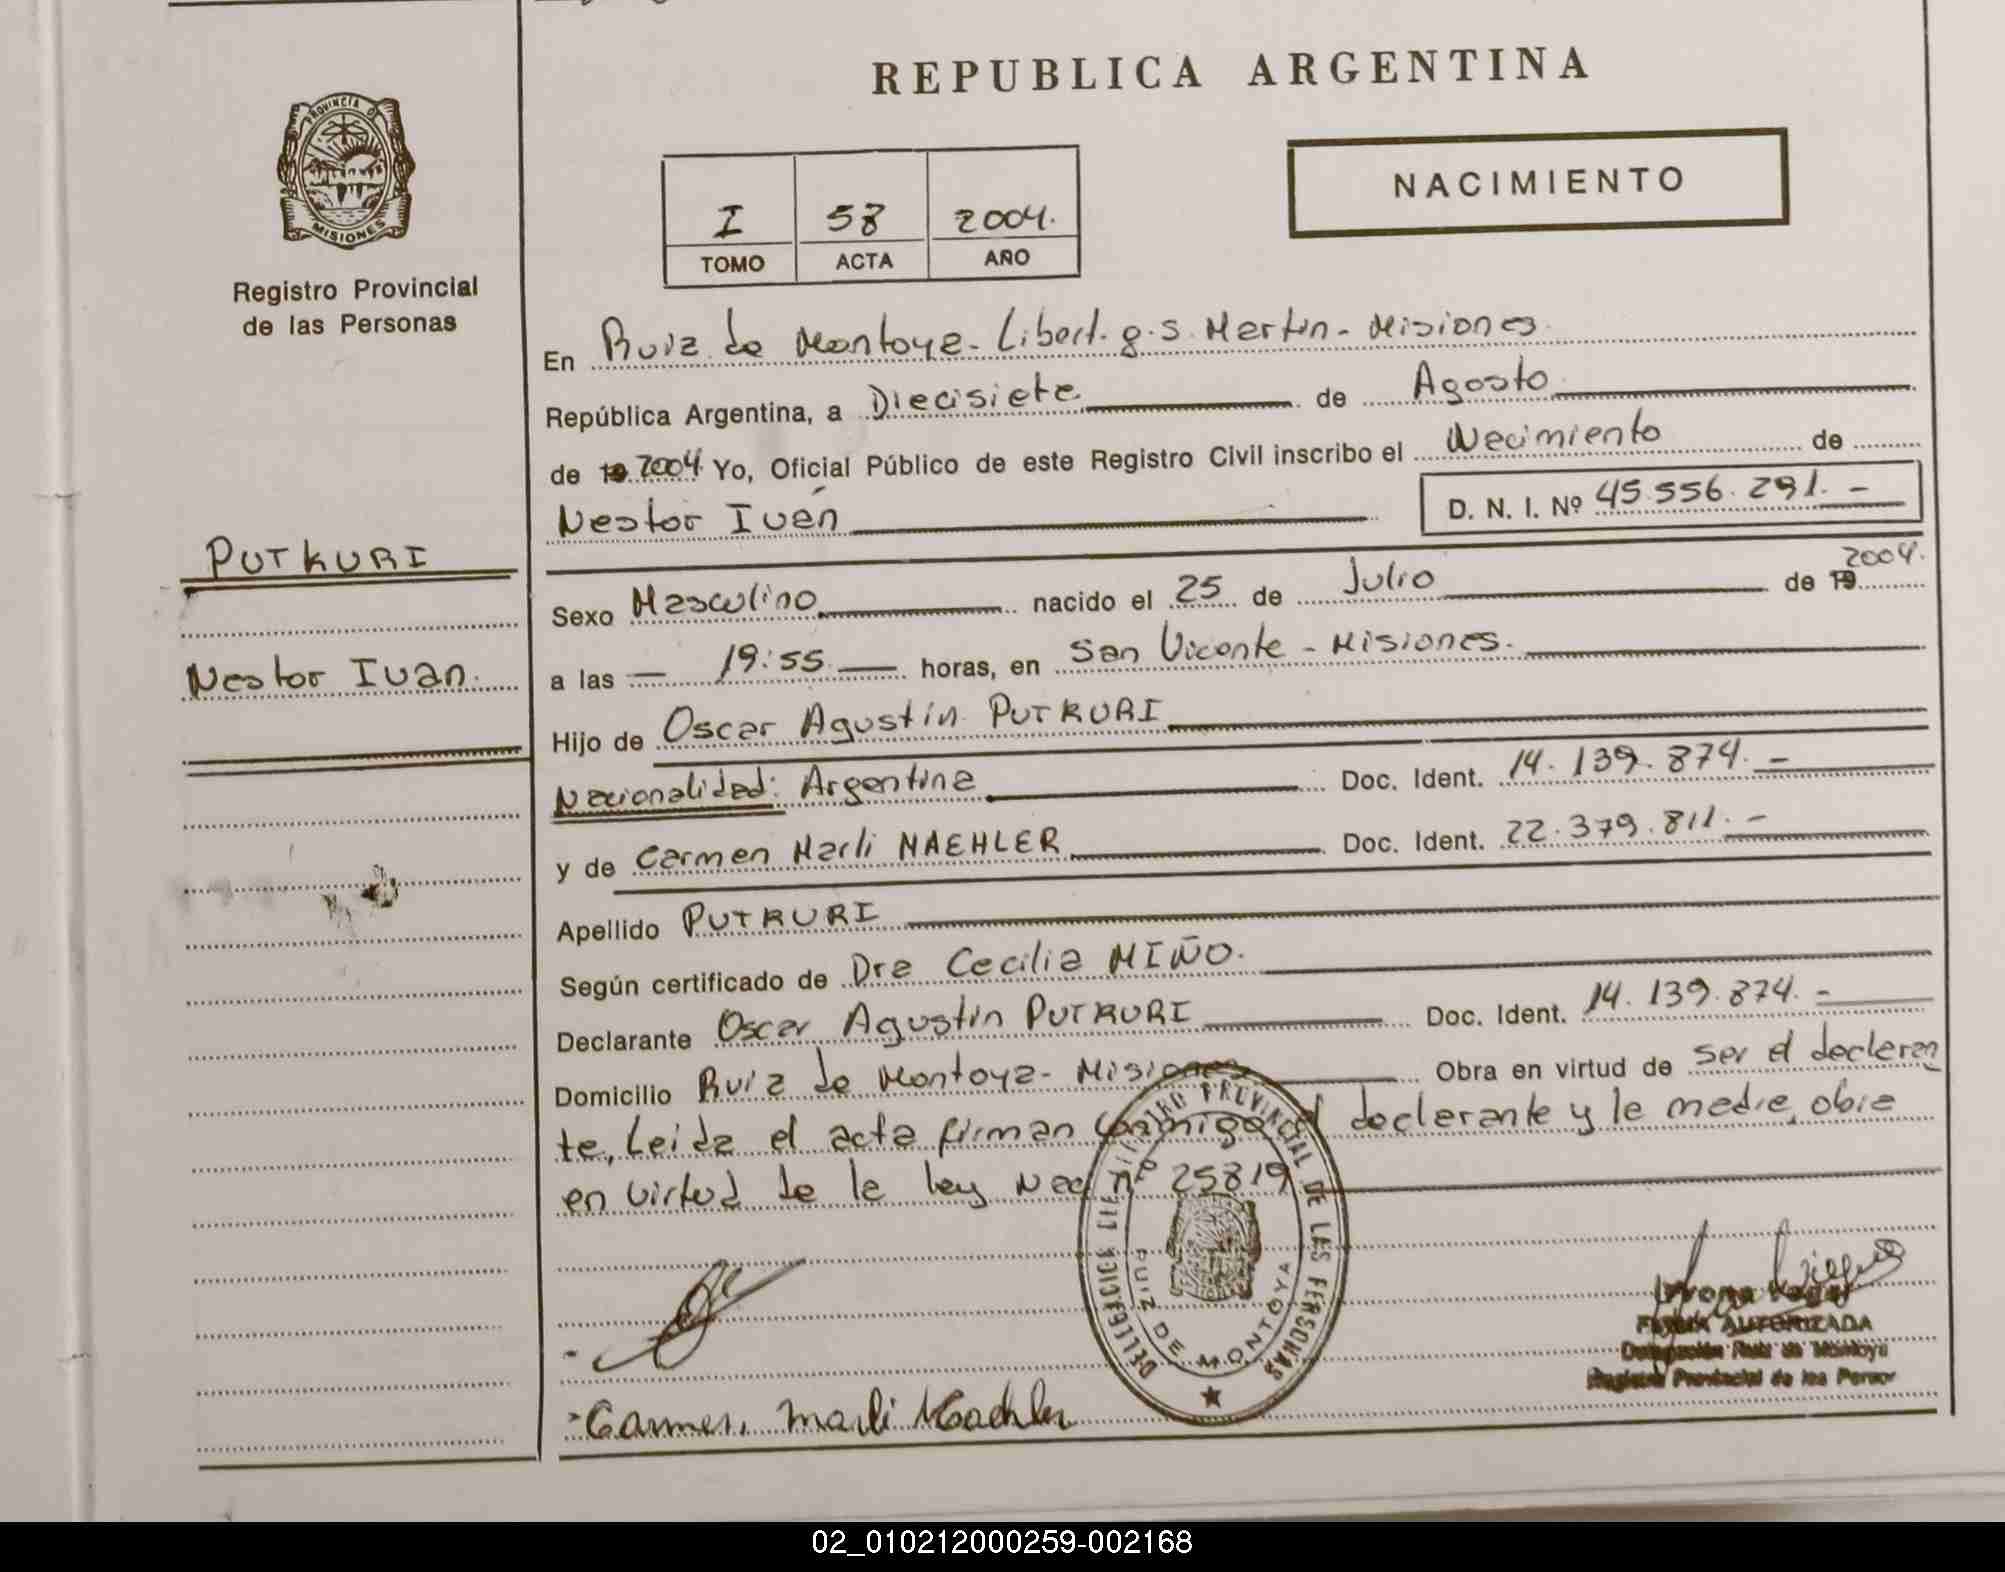 REPUBLICA ARGENTINA
PROVINCIA DE
MISIONES
Registro Provincial
de las Personas
NACIMIENTO
I 58 2004.
TOMO ACTA AÑO
En Ruiz de Montoya - Libert. g. S. Martin - Misiones
República Argentina, a Diecisiete de Agosto
de 19 2004. Yo, Oficial Público de este Registro Civil inscribo el Nacimiento de
Nestor Iván D. N. I. Nº 45.556.291.-
PUTKURI
Nestor Ivan.
Sexo Masculino nacido el 25 de Julio de 19 2004.
a las - 19:55 - horas, en San Vicente - Misiones.
Hijo de Oscar Agustín PUTKURI
Nacionalidad: Argentina Doc. Ident. 14.139.874.-
y de Carmen Marli MAEHLER Doc. Ident. 22.379.811.-
Apellido PUTKURI
Según certificado de Dra Cecilia MIÑO.
Declarante Oscar Agustin PUTKURI Doc. Ident. 14.139.874.-
Domicilio Ruiz de Montoya - Misiones Obra en virtud de ser el declaran
te, Leida el acta firman conmigo el declarante y la madre, obra
en virtud de la ley Nac nº 25819
DELEGACION DEL REGISTRO PROVINCIAL DE LAS PERSONAS
RUIZ DE MONTOYA
Carmen Marli Maehler
FIRMA AUTORIZADA
Delegación Ruiz de Montoya
Registro Provincial de las Person
02_010212000259-002168